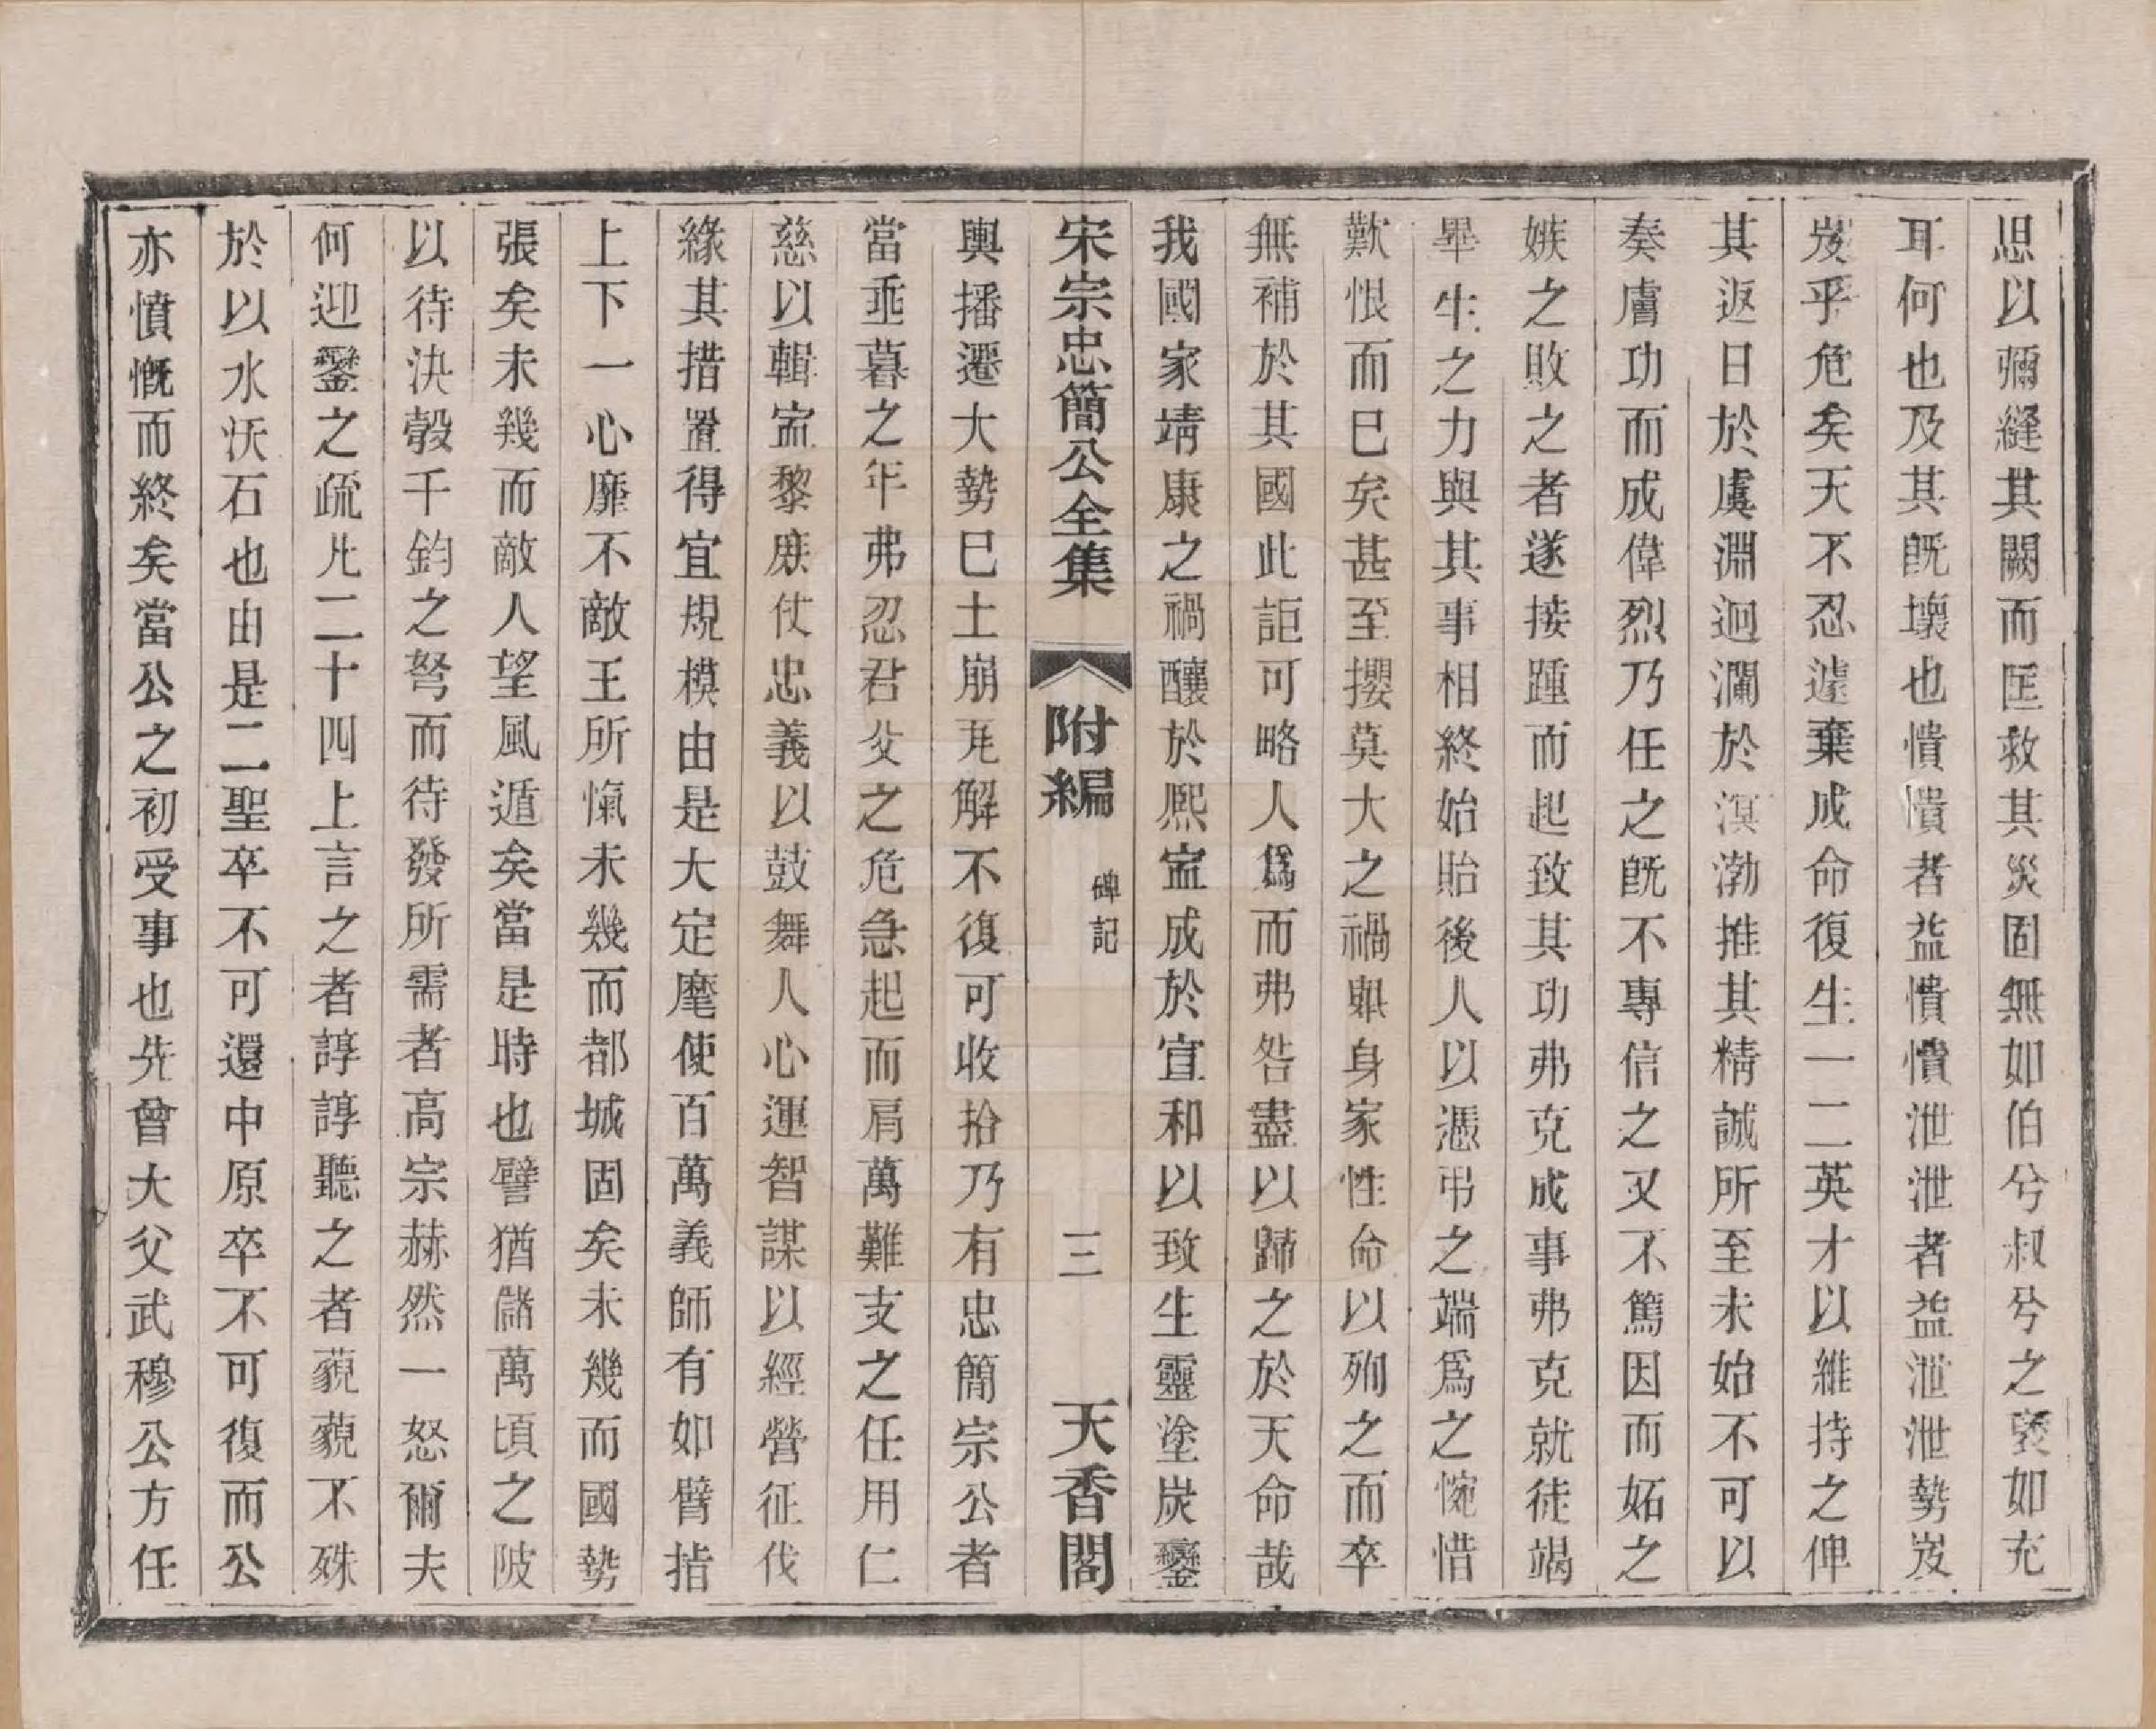 思以彌縫其闕而匡救其災固無如伯兮叔兮之褎如充
耳何也及其旣壞也憒憒者益憒憒泄泄者益泄泄勢岌
岌乎危矣天不忍遽棄成命復生一二英才以維持之俾
其返日於虞淵迴瀾於溟渤推其精誠所至未始不可以
奏膚功而成偉烈乃任之旣不專信之又不篤因而妬之
嫉之敗之者遂接踵而起致其功弗克成事弗克就徒竭
畢生之力與其事相終始貽後人以憑弔之端爲之惋惜
歎恨而已矣甚至攖莫大之禍舉身家性命以殉之而卒
無補於其國此詎可略人爲而弗咎盡以歸之於天命哉
我國家靖康之禍釀於熙寍成於宣和以致生靈塗炭鑾
宋宗忠簡公全集 附編 碑記 三 天香閣
輿播遷大勢已土崩瓦解不復可收拾乃有忠簡宗公者
當垂暮之年弗忍君父之危急起而肩萬難支之任用仁
慈以輯寍黎庶仗忠義以鼓舞人心運智謀以經營征伐
緣其措置得宜規模由是大定麾使百萬義師有如臂指
上下一心靡不敵王所愾未幾而都城固矣未幾而國勢
張矣未幾而敵人望風遁矣當是時也譬猶儲萬頃之陂
以待決彀千鈞之弩而待發所需者高宗赫然一怒爾夫
何迎鑾之疏凡二十四上言之者諄諄聽之者藐藐不殊
於以水沃石也由是二聖卒不可還中原卒不可復而公
亦憤慨而終矣當公之初受事也先曾大父武穆公方任